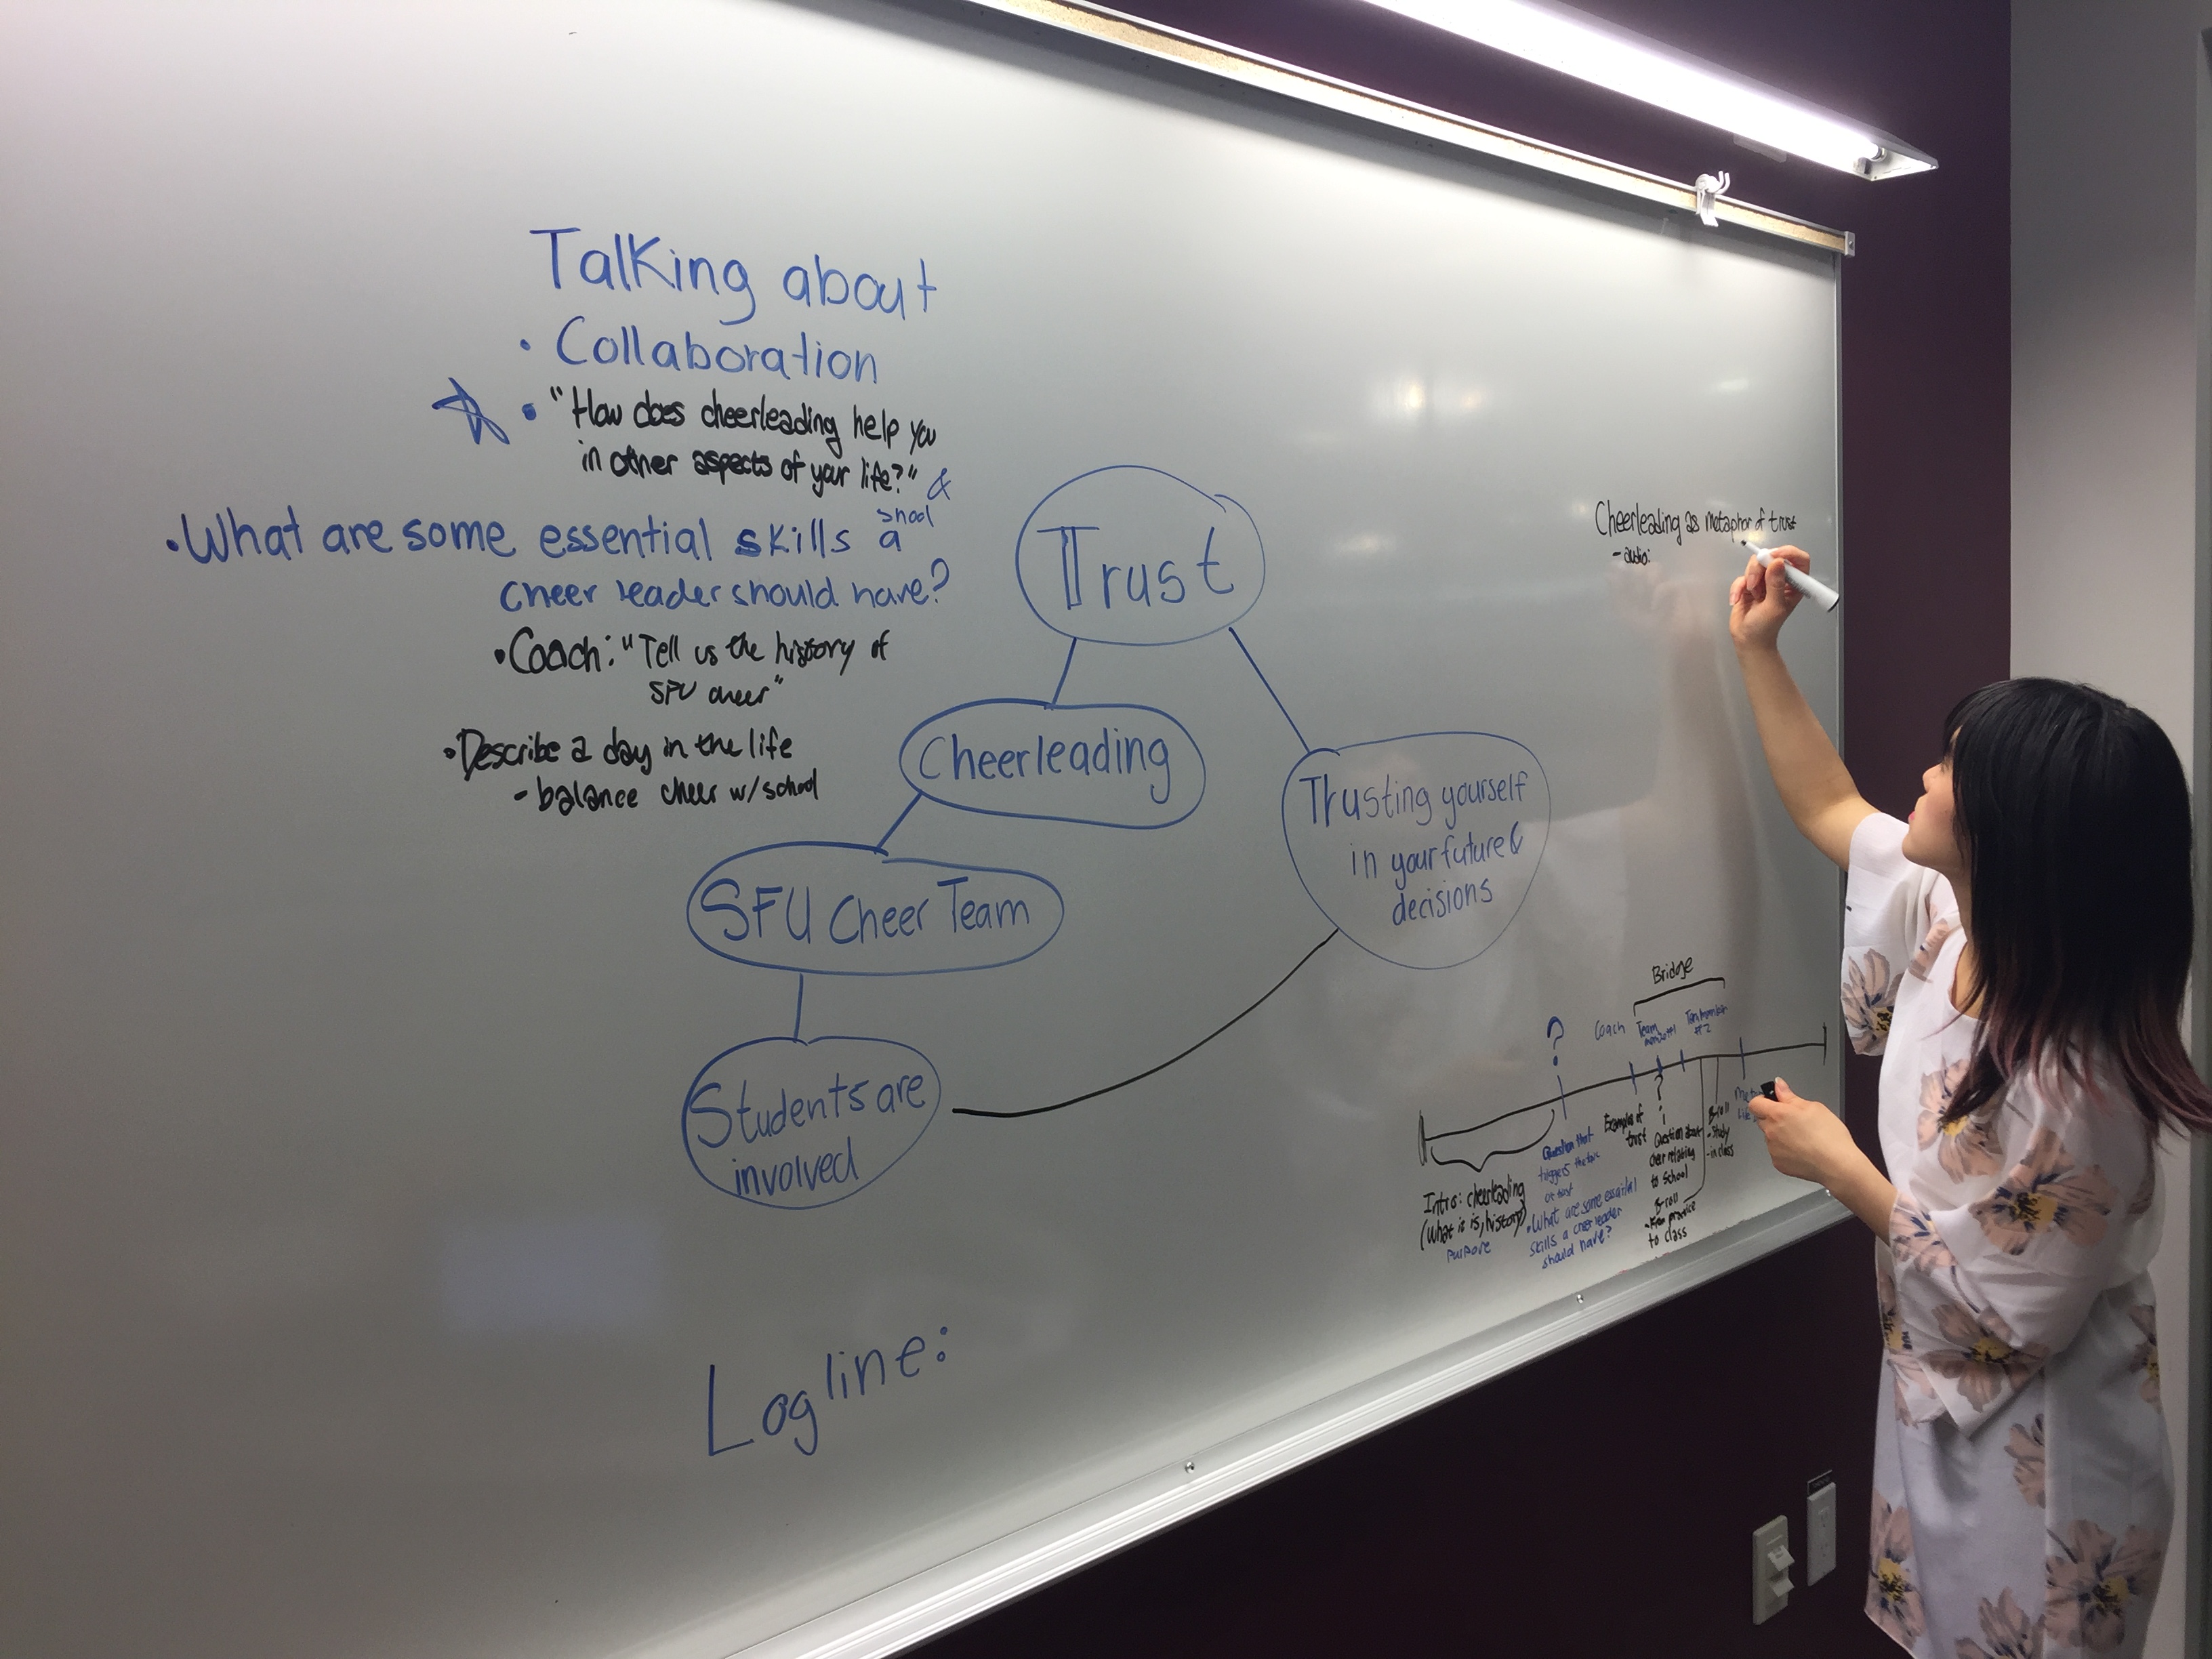 Talking about
• Collaboration
• "How does cheerleading help you
in other aspects of your life?" &
shool
• What are some essential skills a
cheer leader should have?
• Coach: "Tell us the history of
SFU cheer"
• Describe a day in the life
- balance cheer w/school
Trust
Cheerleading
Trusting yourself
in your future &
decisions
SFU Cheer Team
Students are
involved
Logline:
Cheerleading as metaphor of trust
- audio:
Bridge
?
Coach
Team
Team member
#2
Intro: cheerleading
(What it is, history)
purpose
Question that
triggers the
• What are some essential
skills a cheerleader
should have?
Examples of
trust
?
Question about
cheer relating
to school
B-roll
- From practice
to class
B-roll
- Study
- in class